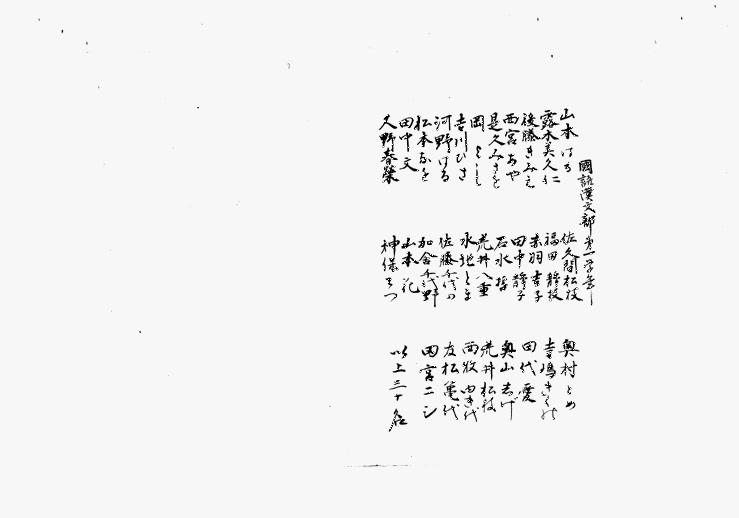 國語漢文部第一学年
山本はる
露木美久仁
後藤きみえ
西宮あや
是久みさを
岡とし
吉川ひさ
河野げる
松本なを
田中文
久野春榮
佐久間松枝
福田静枝
赤羽幸子
田中静子
石水哲
荒井八重
水地とま
佐藤千代の
加舎千代野
山本花
神保てつ
奥村とめ
吉嶋きくの
田代愛
奥山しげ
荒井松枝
西牧ゆき代
友松亀代
四宮ニシ
以上三十名